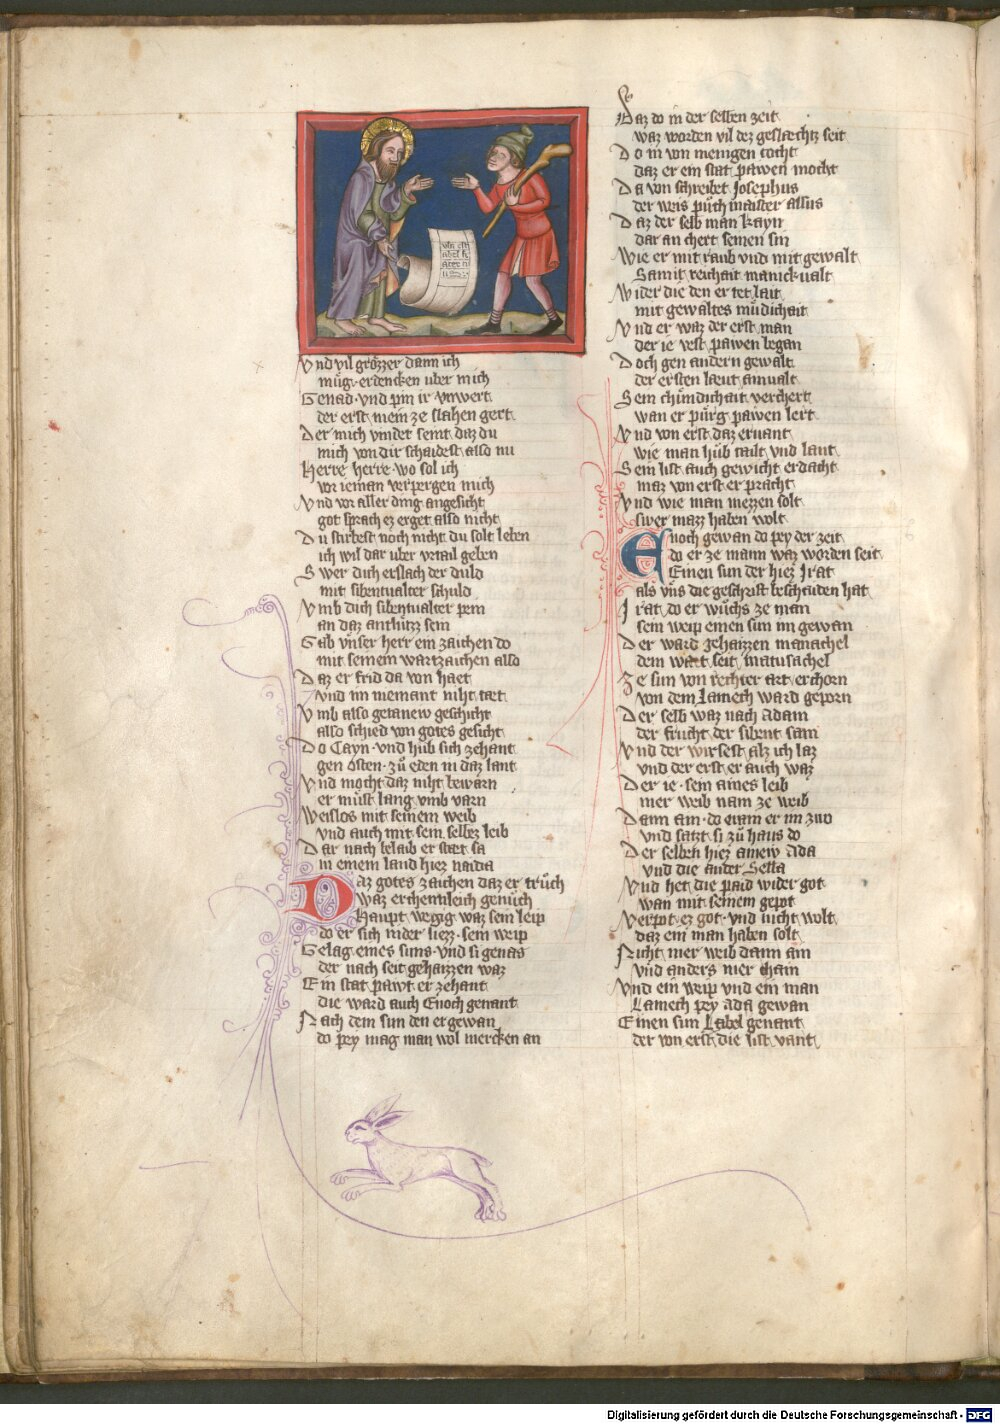 vbi est
abel fr
ater tu
us
Vnd vil grözzer dann ich
müg erdencken uber mich
Genad vnd pin ir vnwert
der erst mein ze slahen gert
Der mich vindet seint daz du
mich von dir schaidest also nu
Herre herre wo sol ich
vor ieman verpergen mich
Vnd vor aller ding angesicht
got sprach ez erget also nicht
Du stirbest noch nicht du solt leben
ich wil dar uber vrtail geben
Swer dich erslach der duld
mit sibentualter schuld
Vmb dich sibentualter pein
an daz anthütz sein
Gab vnser herr ein zaichen do
mit seinem wartzaichen also
Daz er frid da von haet
vnd im niemant niht taet
Vmb also getanew geschicht
also schied von gotes gesicht
Do Cayn vnd hüb sich zehant
gen osten zů eden in daz lant
Vnd mocht daz niht bewarn
er müst lang vmb varn
Weislos mit seinem weib
vnd auch mit sein selbez leib
Dar nach belaib er staet sa
in einem land hiez naida
Daz gotes zaichen daz er trůch
waz erchentleich genůch
Haupt wegig waz sein leip
do er sich nider liezz sein weip
Gelag eines suns vnd si genas
der nach seit gehaizzen waz
Ein stat pawt er zehant
die ward auch Enoch genant
Nach dem sun den er gewan
do pey mag man wol mercken an
Daz do in der selben zeit
waz worden vil dez geslaechtz seit
Do in von menigen tocht
daz er ein stat pawen mocht
Da von schreibet Josephus
der weis půch maister alsus
Daz der selb man kayn
dar an chert seinen sin
Wie er mit raub vnd mit gewalt
Samit reichait manickualt
Wider die den er tet lait
mit gewaltes müdichait
Vnd er waz der erst man
der ie vest pawen began
Doch gen andern gewalt
der ersten laeut ainualt
Sein chündichait verchert
wan er pürg pawen lert
Vnd von erst daz ervant
wie man hüb tailt vnd lant
Sein list auch gewicht erdacht
maz von erst er pracht
Vnd wie man mezzen solt
swer mazz haben wolt
Enoch gewan do pey der zeit
do er ze mann waz worden seit
Einen sun der hiez Irat
als vns die geschrift bescheiden hat
Irat do er wůchs ze man
sein weip einen sun im gewan
Der ward gehaizzen manachel
dem wart seit matusachel
Ze sun von rechter art erchorn
von dem Lamech ward geporn
Der selb waz nach Adam
der frucht der sibent sam
Vnd der wirsest alz ich laz
vnd der erst er auch waz
Der ie sein aines leib
mer weib nam ze weib
Dann ain do nam er im zwo
vnd satzt si zů haus do
Der selben hiez ainew Ada
vnd die ander Sella
Vnd het die paid wider got
wan mit seinem gepot
Verpot ez got vnd nicht wolt
daz ein man haben solt
Nicht mer weib dann ain
vnd anders mer chain
Vnd ein weip vnd ein man
Lamech pey Ada gewan
Einen sun Jabel genant
der von erst die list vant
Digitalisierung gefördert durch die Deutsche Forschungsgemeinschaft - DFG